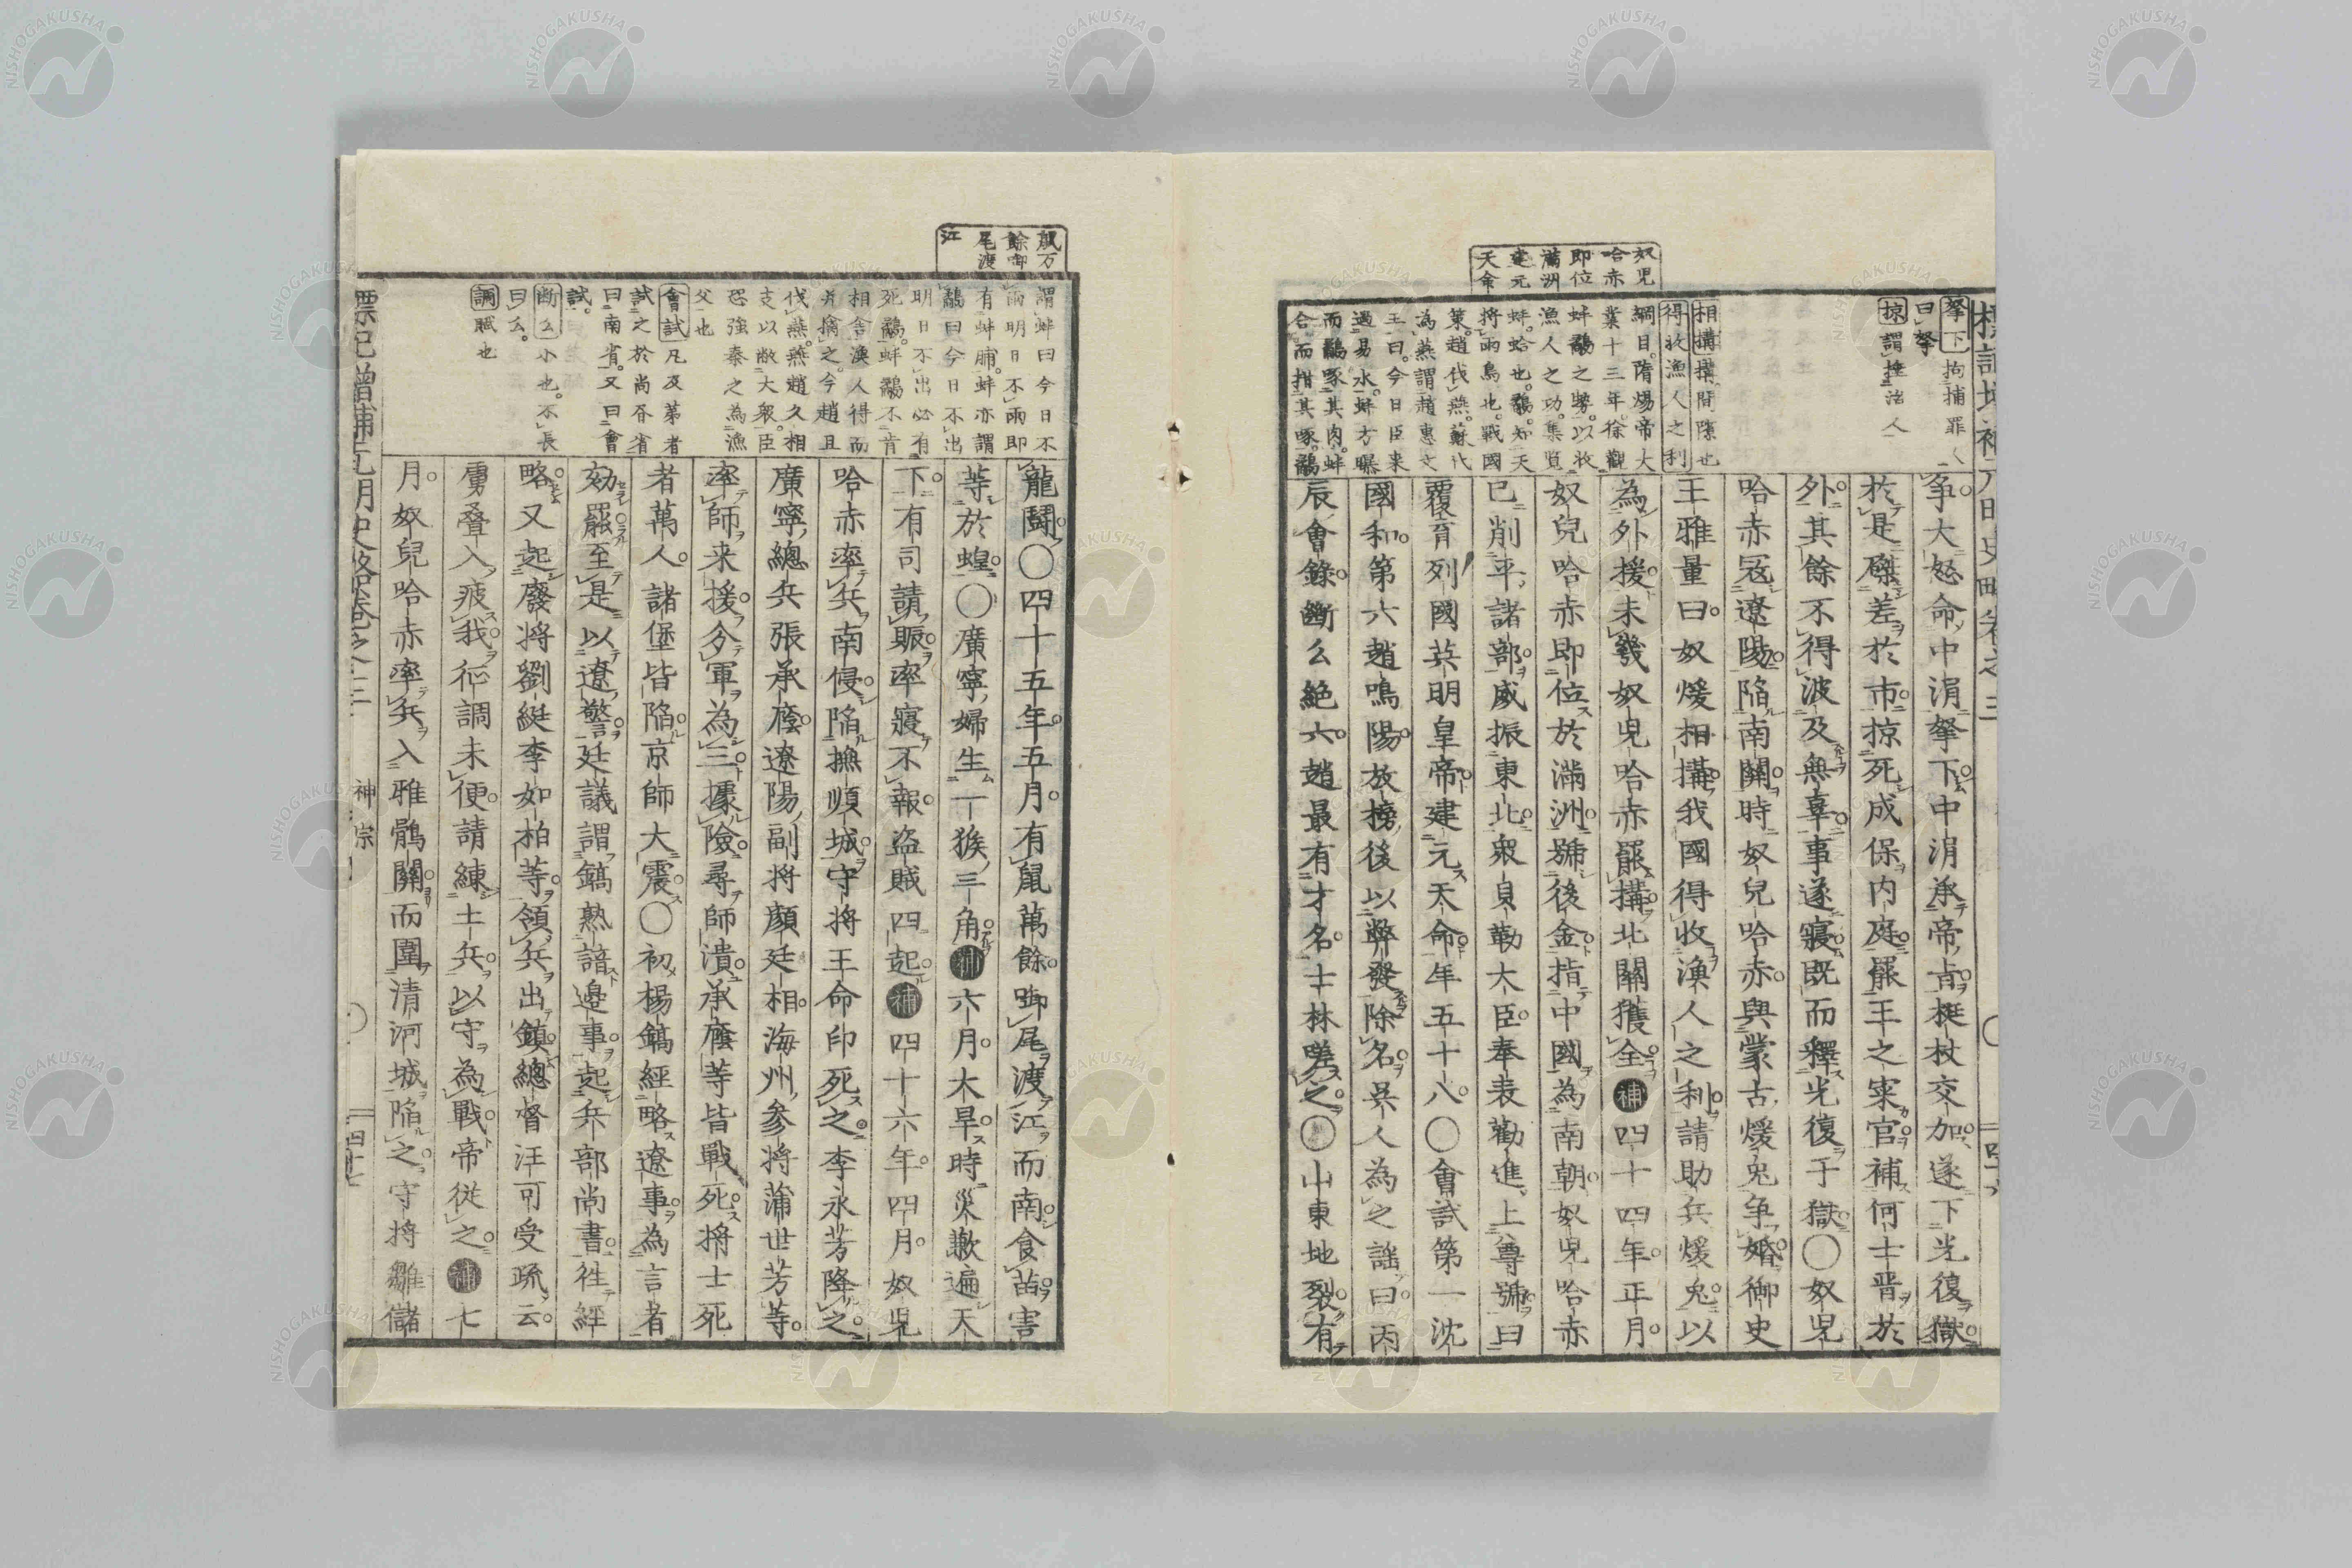 奴児
哈赤
即位
満洲
建元
天命
拏下拘捕罪人
曰拏
掠謂捶治人
相搆搆間隙也
得收漁人之利
綱目隋煬帝大
業十三年徐觀
蚌鷸之勢以收
漁人之功集覧
蚌蛤也鷸知天
將雨鳥也戰國
策趙伐燕蘇代
為燕謂趙惠文
王曰今日臣来
過易水蚌方曝
而鷸啄其肉蚌
合而拑其啄鷸
争大怒命中涓拏下中涓承帝㫖梃杖交加遂下光復獄
於是磔差於市掠死成保内庭罷王之寀官補何士晋於
外其餘不得波及無辜事遂寢既而釋光復于獄〇奴児
哈赤冦遼陽陥南關時奴兒哈赤與蒙古煖兎争婚御史
王雅量曰奴煖相搆我國得收漁人之利請助兵煖兎以
為外援未幾奴児哈赤罷搆北關獲全補四十四年正月
奴兒哈赤即位於滿洲號後金指中國為南朝奴児哈赤
已削平諸部威振東北衆貝勒大臣奉表勸進上尊號曰
覆育列國英明皇帝建元天命年五十八〇會試第一沈
國和第六趙鳴陽放榜後以弊發除名吳人為之謡曰丙
辰會錄斷么絶六趙最有才名士林嘆之〇山東地裂有
鼠万
餘啣
尾渡
江
謂蚌曰今日不
雨明日不雨即
有蚌脯蚌亦謂
鷸曰今日不出
明日不出必有
死鷸蚌鷸不肯
相舎漁人得而
并擒之今趙且
伐燕燕趙久相
支以敝大衆臣
恐強秦之為漁
父也
會試凡及第者
試之於尚書省
曰南省又曰會
試
断么小也不長
曰么
調賦也
龍鬪〇四十五年五月有鼠萬餘啣尾渡江而南食苗害
等於蝗〇廣寧婦生一猴三角補六月大旱時災歉遍天
下有司請賑率寢不報盗賊四起補四十六年四月奴児
哈赤率兵南侵陥撫順城守将王命印死之李永芳降之
廣寧總兵張承廕遼陽副将顔廷相海州参将蒲世芳等
率師来援分軍為三據險尋師潰承廕等皆戰死將士死
者萬人諸堡皆陥京師大震〇初楊鎬經略遼事為言者
効罷至是以遼警廷議謂鎬熟諳邉事起兵部尚書徃經
略又起廢将劉綎李如柏等領兵出鎮總督汪可受疏云
虜疊入疲我征調未便請練土兵以守為戰帝従之補七
月奴兒哈赤率兵入雅鶻關而圍清河城陥之守将鄒儲
標記増補元明史略巻之三
神宗
四十七